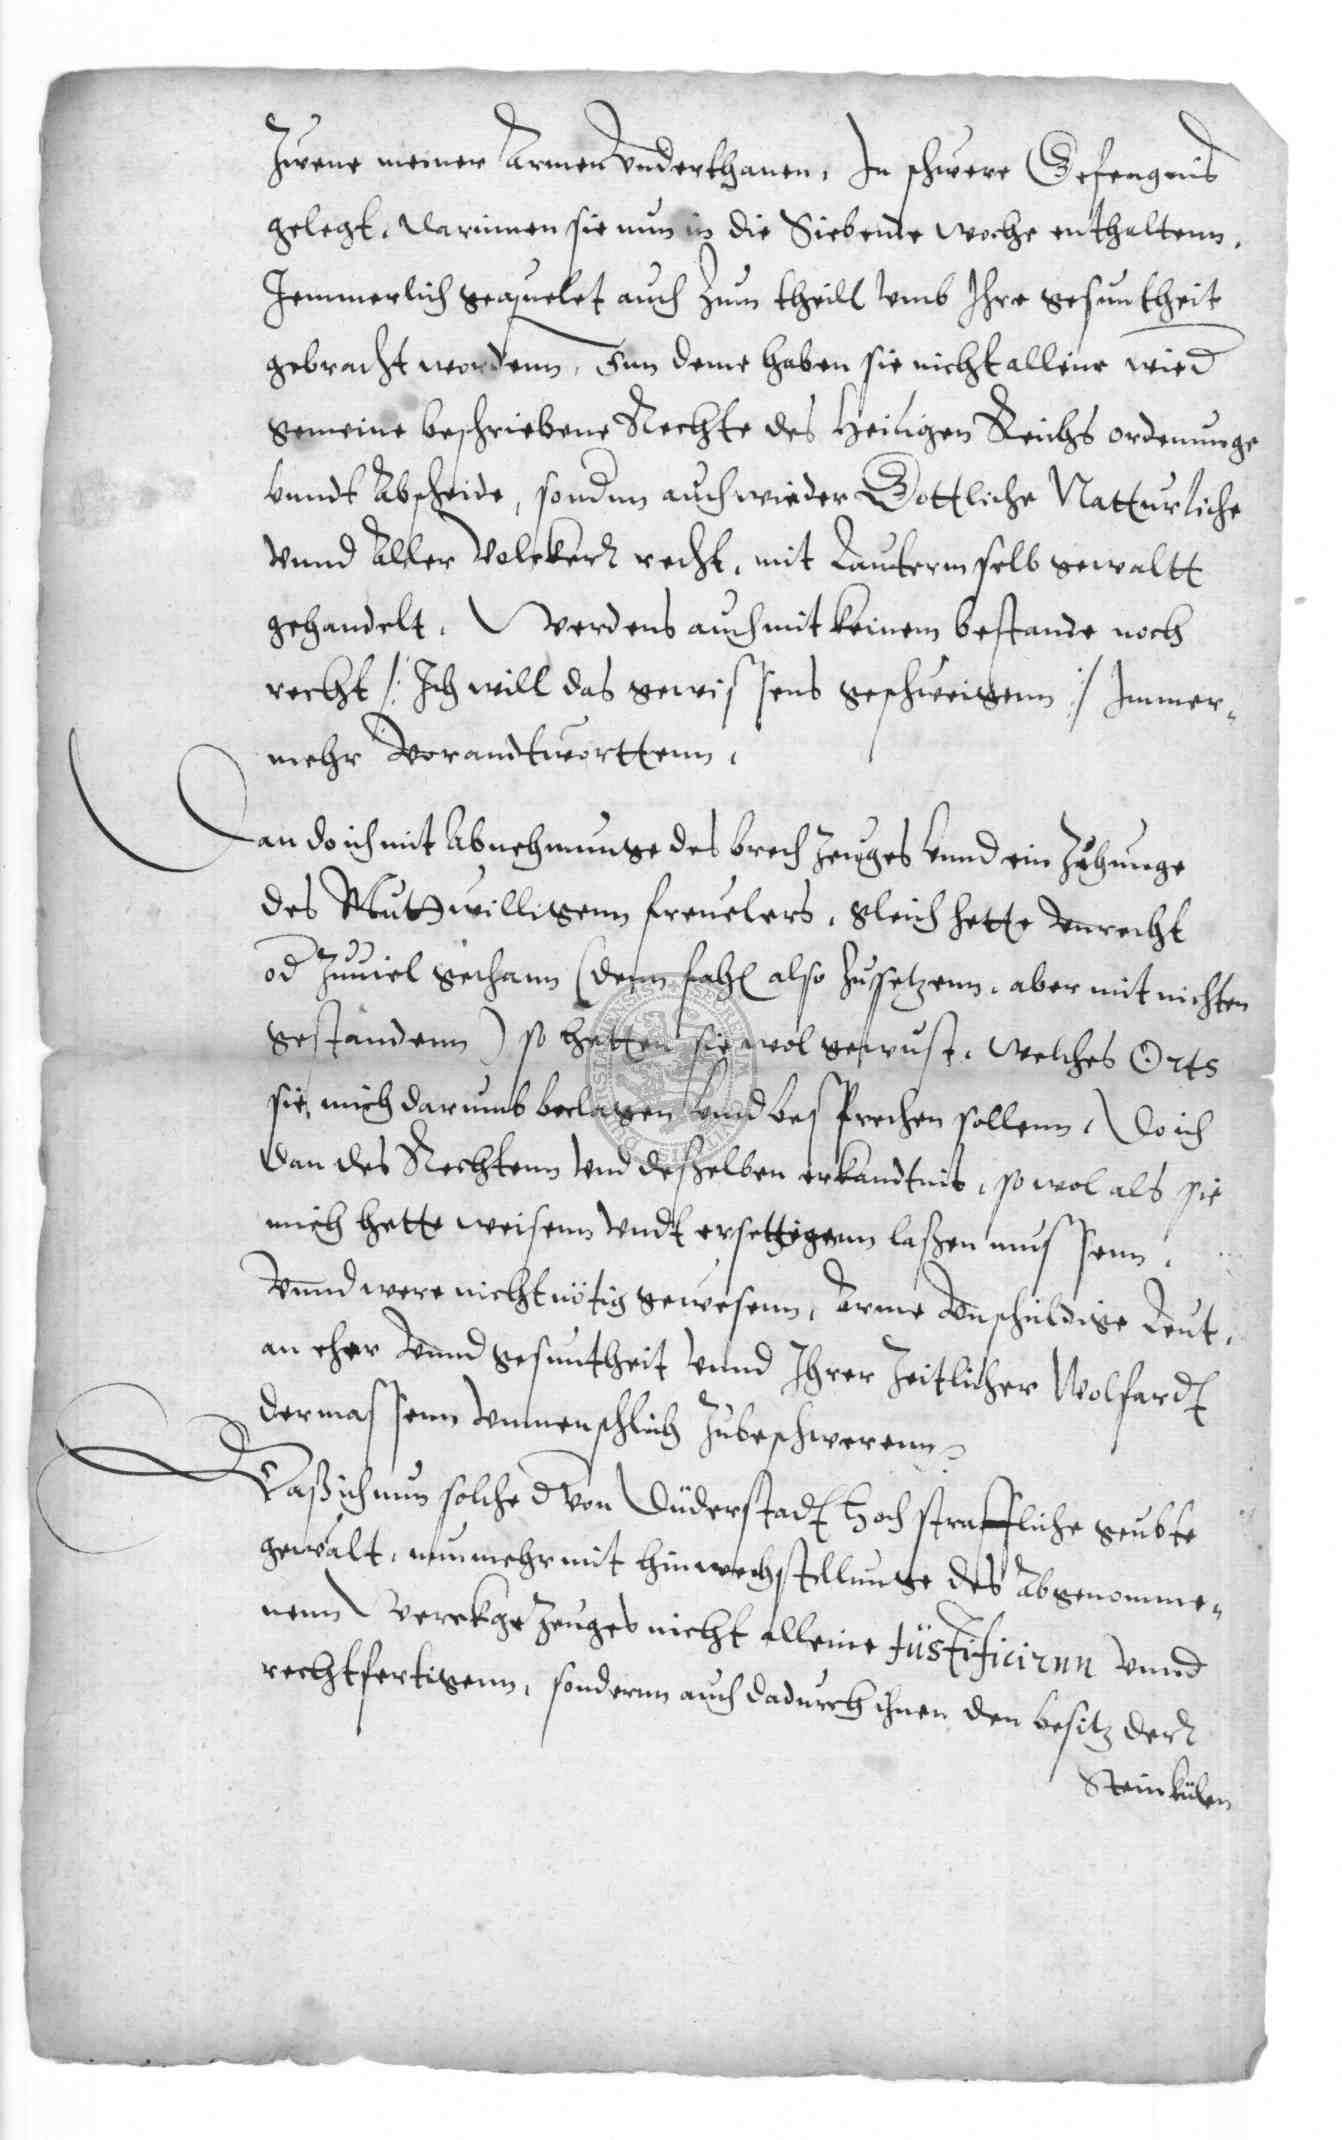 Zwene meiner Armen Vnderthanen, In schwere Gefengnis
gelegt, darinnen sie nun in die Siebende woche enthaltenn,
Jemmerlich gequelet auch Zum theill vmb Ihre gesuntheit
gebracht wordenn, Inn deme haben sie nicht alleine wied
gemeine beschriebene Rechte des Heiligen Reichs ordenunge
vnndt Abscheide, sondern auch wieder Gottliche Natturliche
Vnnd Aller Volcker recht, mit Lauterm selb gewaltt
gehandelt, Werdens auch mit keinem bestande noch
recht /: Ich will das gewissens geschweigenn :/ Immer-
mehr Vorandtworttenn,
Dan do ich mit Abnehmunge des brech Zeuges vnnd ein Zihunge
des Muthwilligenn freuelers, gleich hette Vnrecht
od Zuuiel gethann (denn fahl also Zusetzenn, aber mit nichten
gestandenn) so hetten sie wol gewust, welches Orts
sie mich darumb beclagen vnnd besprechen sollenn, Do ich
dan des Rechtenn vnd desselben erkandtnis, so wol als sie
mich hette weisenn vndt ersettigenn laßen mussenn,
Vnnd were nicht nötig gewesenn, Arme Vnschuldige Leut,
an eher Vnnd gesuntheit vnnd Ihrer Zeitlicher Wolfardt
dermassenn vnmenschlich Zubeschwerenn
Daß ich nun solche d von Duderstadt hoch straffliche geubte
gewalt, nunmehr mit hinwechstellunge des Abgenomme-
nenn Werckge Zeuges nicht alleine Justificirnn vnnd
rechtfertigenn, sondernn auch dadurch ihnen den besitz der
Steinkulen